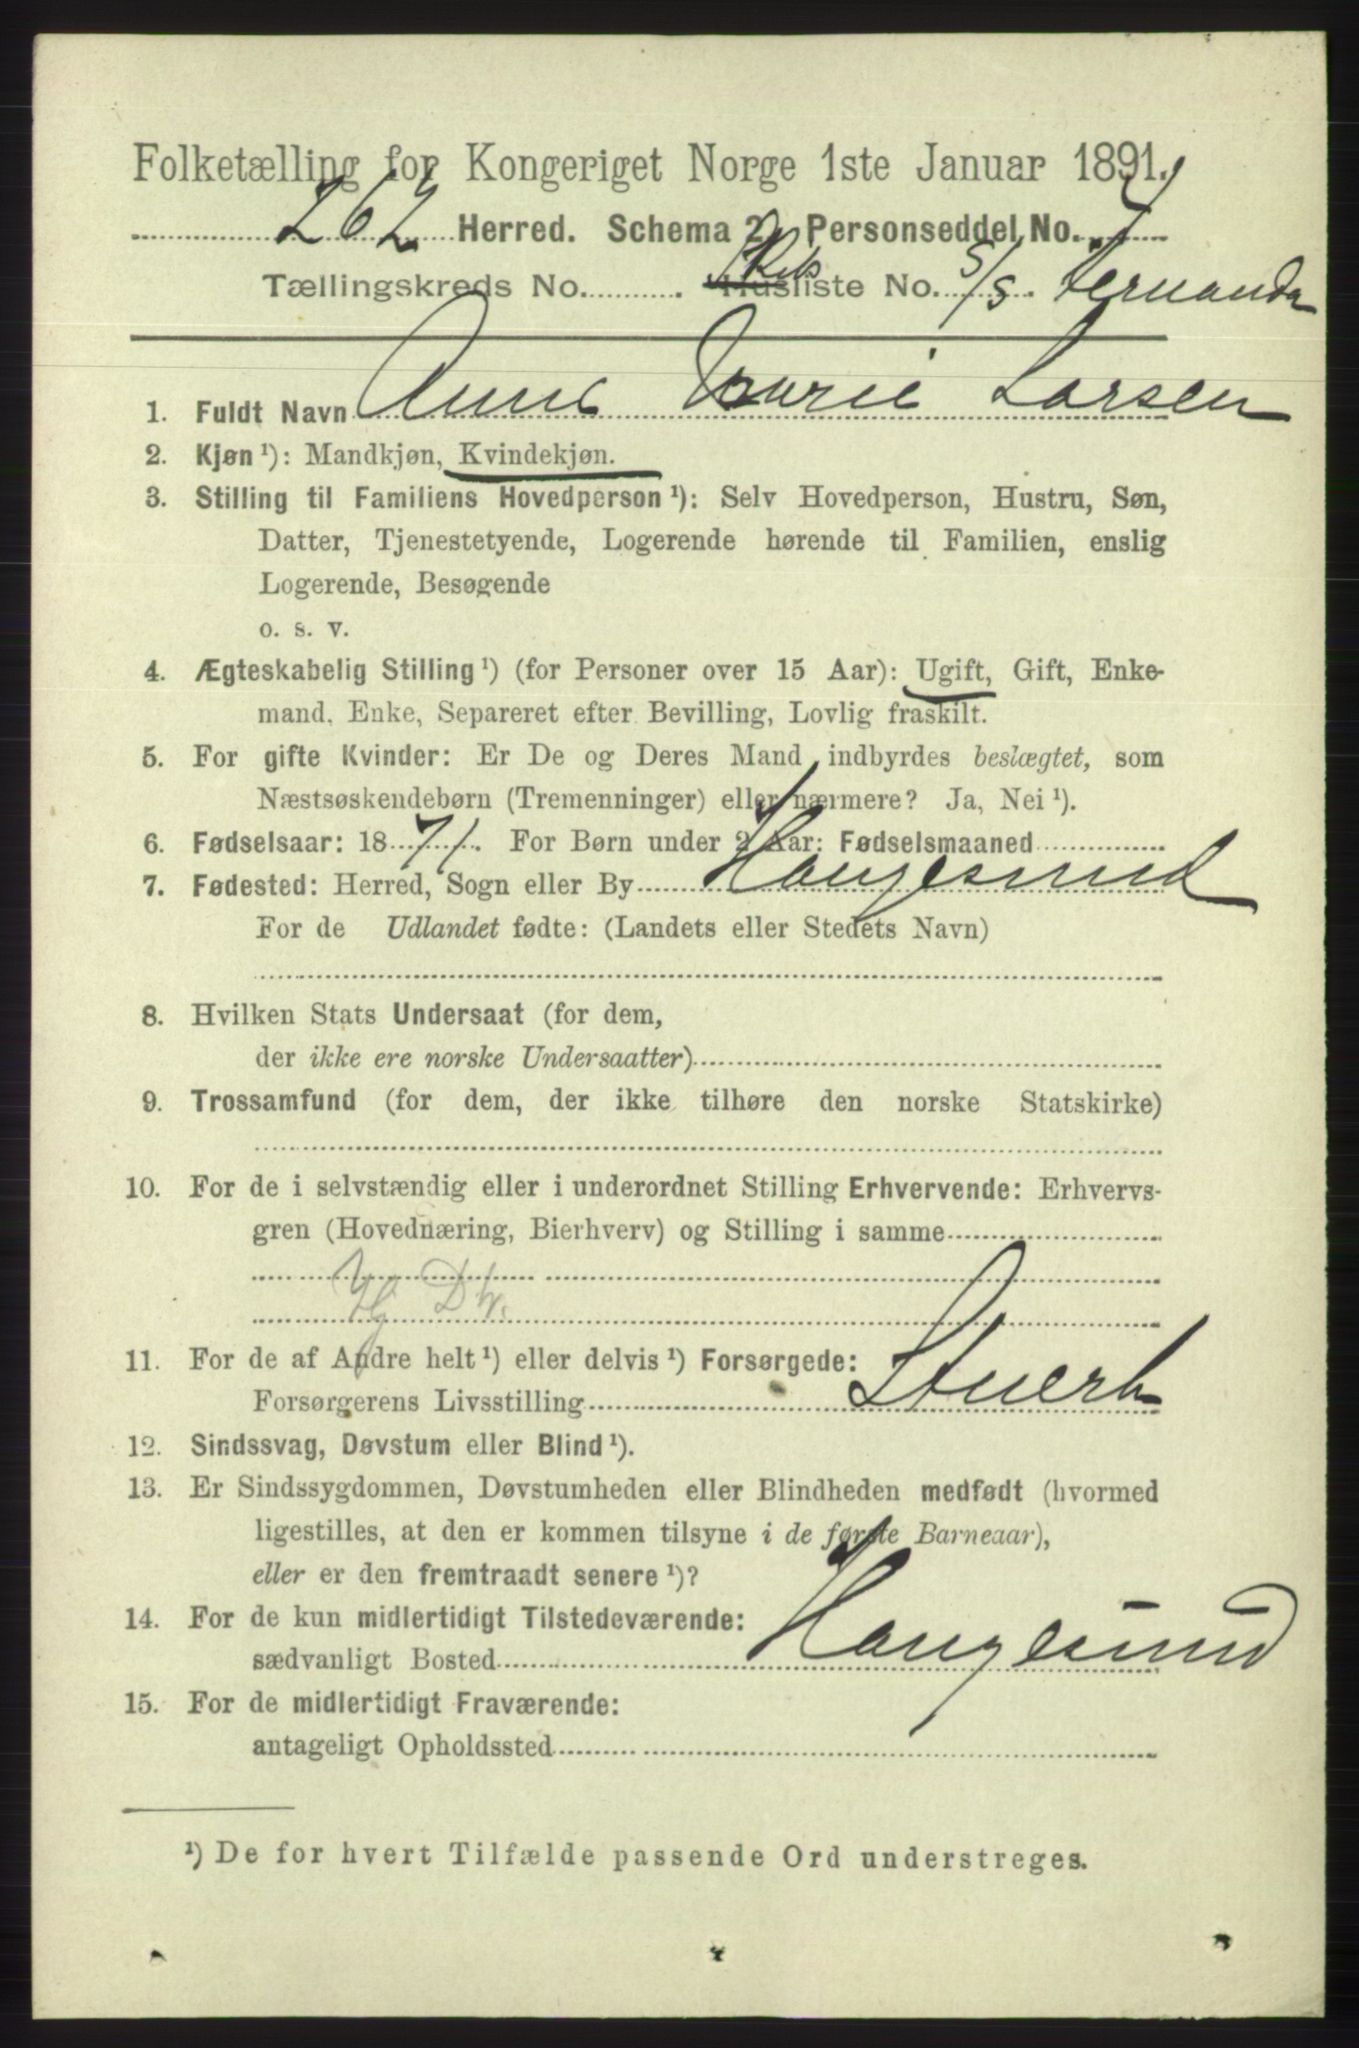 Folketælling for Kongeriget Norge 1ste Januar 1891.
262 Herred. Schema 2. Personseddel No. 7
Tællingskreds No. Husliste No. S/S Hernanda
1. Fuldt Navn Anne Marie Larsen
2. Kjøn ¹): Mandkjøn, Kvindekjøn.
3. Stilling til Familiens Hovedperson ¹): Selv Hovedperson, Hustru, Søn,
Datter, Tjenestetyende, Logerende hørende til Familien, enslig
Logerende, Besøgende
o. s. v.
4. Ægteskabelig Stilling ¹) (for Personer over 15 Aar): Ugift, Gift, Enke-
mand, Enke, Separeret efter Bevilling, Lovlig fraskilt.
5. For gifte Kvinder: Er De og Deres Mand indbyrdes beslægtet, som
Næstsøskendebørn (Tremenninger) eller nærmere? Ja, Nei ¹).
6. Fødselsaar: 1871. For Børn under 2 Aar: Fødselsmaaned
7. Fødested: Herred, Sogn eller By Haugesund
For de Udlandet fødte: (Landets eller Stedets Navn)
8. Hvilken Stats Undersaat (for dem,
der ikke ere norske Undersaatter)
9. Trossamfund (for dem, der ikke tilhøre den norske Statskirke)
10. For de i selvstændig eller i underordnet Stilling Erhvervende: Erhvervs-
gren (Hovednæring, Bierhverv) og Stilling i samme
11. For de af Andre helt ¹) eller delvis ¹) Forsørgede:
Forsørgerens Livsstilling Stuert
12. Sindssvag, Døvstum eller Blind ¹).
13. Er Sindssygdommen, Døvstumheden eller Blindheden medfødt (hvormed
ligestilles, at den er kommen tilsyne i de første Barneaar),
eller er den fremtraadt senere ¹)?
14. For de kun midlertidigt Tilstedeværende:
sædvanligt Bosted Haugesund
15. For de midlertidigt Fraværende:
antageligt Opholdssted
¹) De for hvert Tilfælde passende Ord understreges.